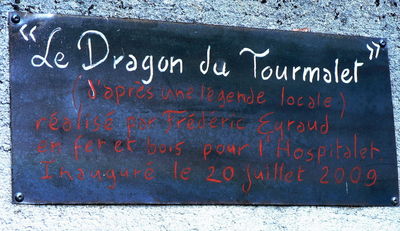 "Le Dragon du Tourmalet"
(d'après une légende locale)
réalisé par Fréderic Eyraud
en fer et bois pour l'Hospitalet
Inauguré le 20 juillet 2009